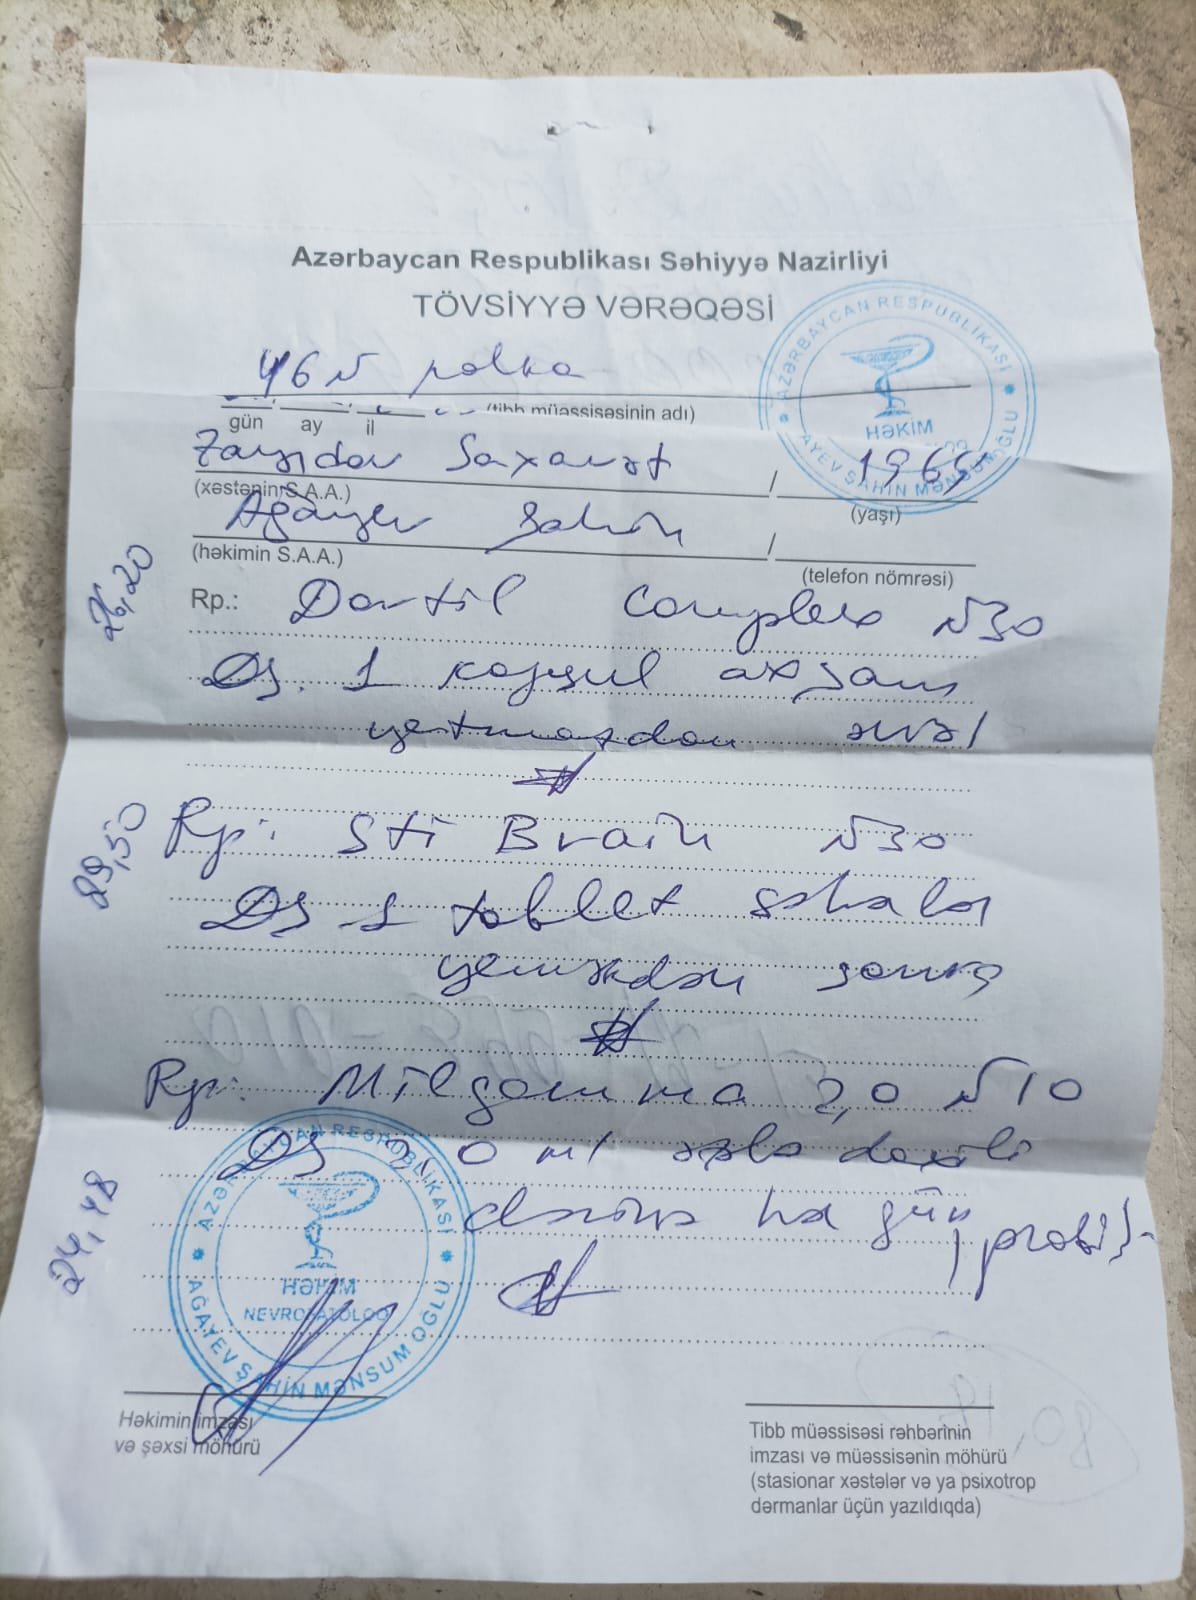 Azərbaycan Respublikası Səhiyyə Nazirliyi
TÖVSİYYƏ VƏRƏQƏSİ
46 N
gün ay il (tibb müəssisəsinin adı)
Saxavət / 1965
(xəstənin S.A.A.) (yaşı)
Ağayev Şahin /
(həkimin S.A.A.) (telefon nömrəsi)
26,20
Rp.: Dortil Complex N30
DS. 1 kapsul axşam
yatmazdan əvəl
89,50
Rp: Sti Brain N30
DS 1 tablet səhələr
yeməkdən sonra
Rp: Milgamma 2,0 N10
DS 2,0 ml əzələ daxili
hər gün
24,48
AZƏRBAYCAN RESPUBLİKASI
HƏKİM
AĞAYEV ŞAHİN MƏNSUM OĞLU
AZƏRBAYCAN RESPUBLİKASI
HƏKİM
NEVROPATOLOQ
AĞAYEV ŞAHİN MƏNSUM OĞLU
Həkimin imzası
və şəxsi möhürü
Tibb müəssisəsi rəhbərinin
imzası və müəssisənin möhürü
(stasionar xəstələr və ya psixotrop
dərmanlar üçün yazıldıqda)